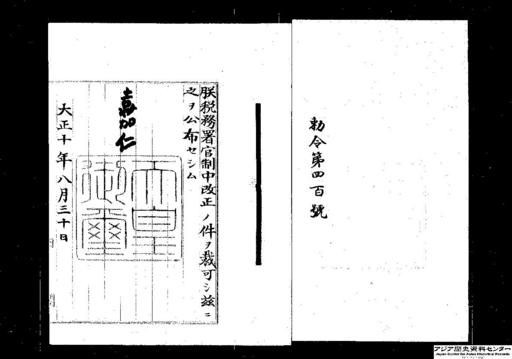 勅令第四百號
朕税務署官制中改正ノ件ヲ裁可シ茲ニ
之ヲ公布セシム
嘉仁
天皇
御璽
大正十年八月三十日
アジア歴史資料センター
Japan Center for Asian Historical Records